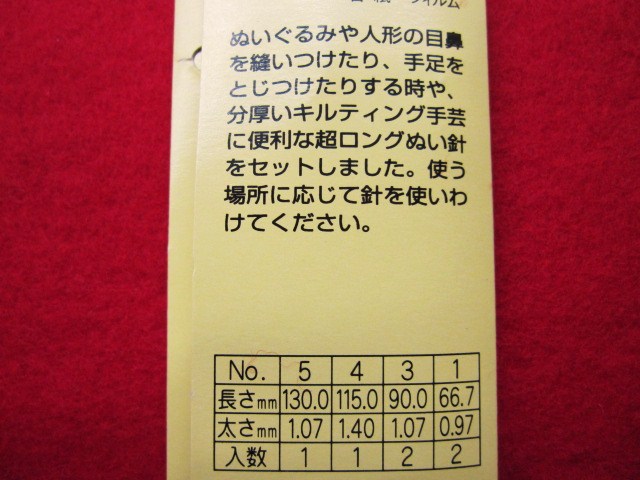 フィルム
ぬいぐるみや人形の目鼻
を縫いつけたり、手足を
とじつけたりする時や、
分厚いキルティング手芸
に便利な超ロングぬい針
をセットしました。使う
場所に応じて針を使いわ
けてください。
No. 5 4 3 1
長さmm 130.0 115.0 90.0 66.7
太さmm 1.07 1.40 1.07 0.97
入数 1 1 2 2